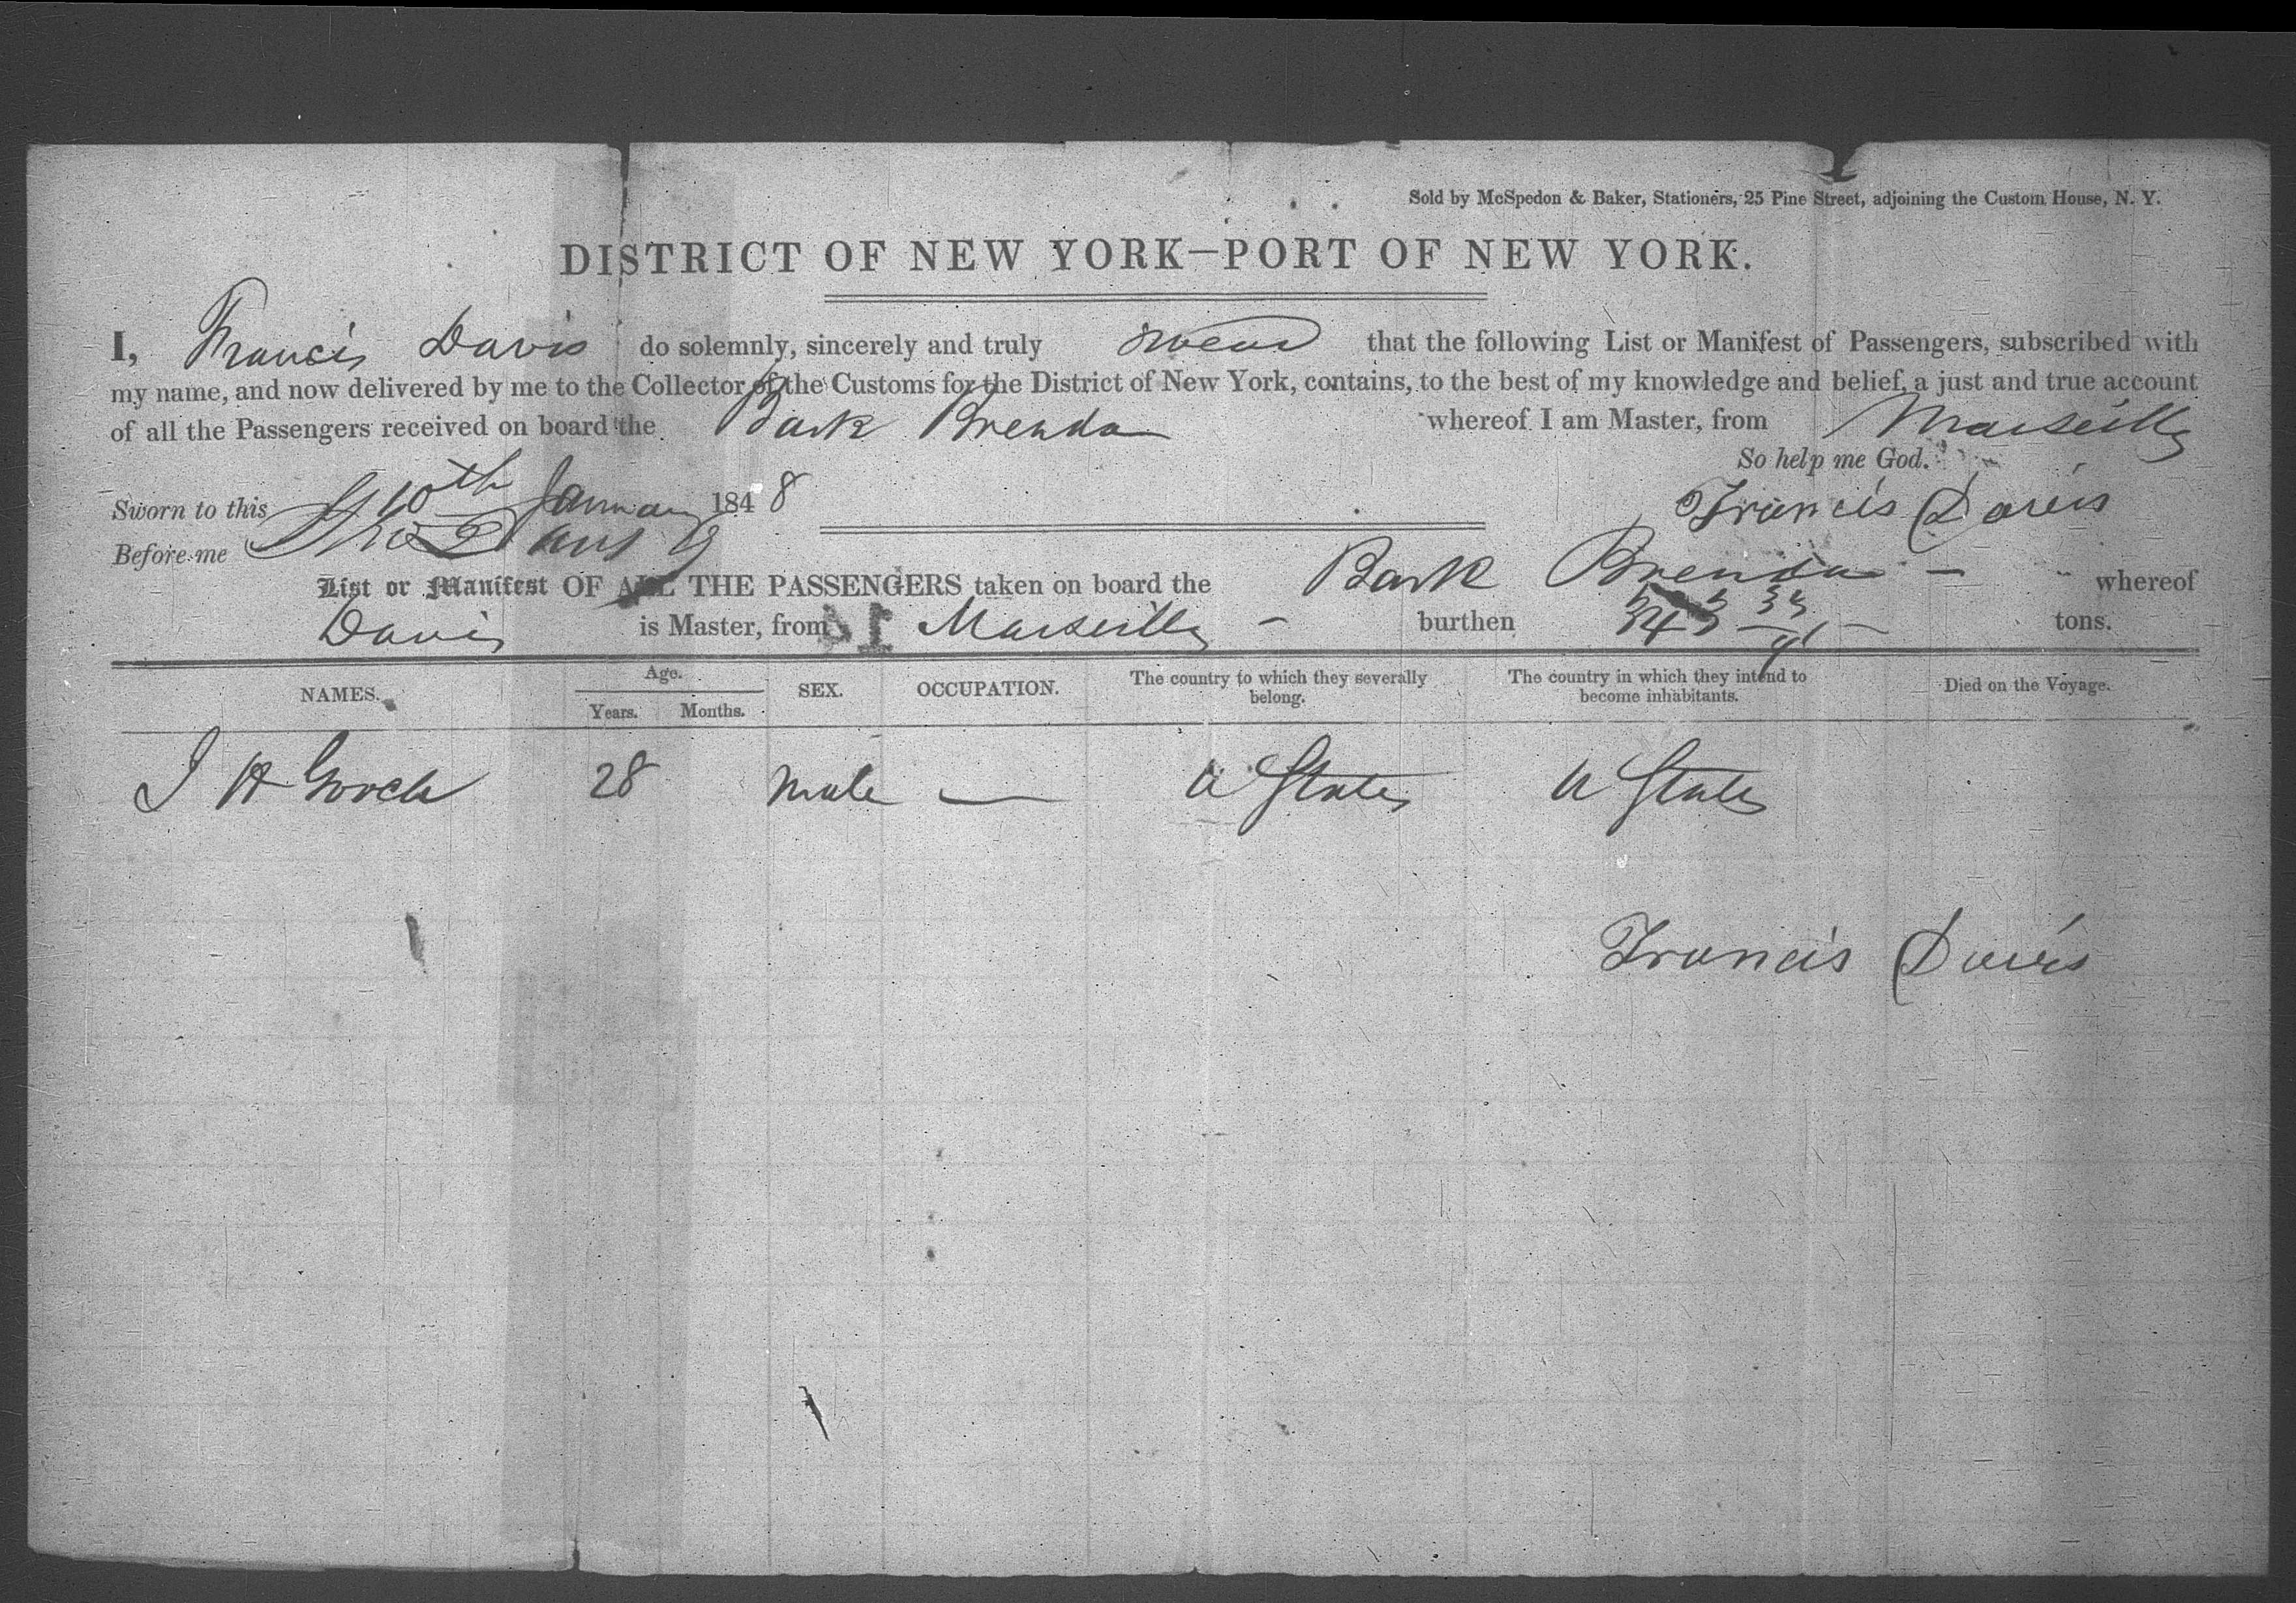 Sold by McSpedon & Baker, Stationers, 25 Pine Street, adjoining the Custom House, N. Y.
DISTRICT OF NEW YORK—PORT OF NEW YORK.
I, Francis Davis do solemnly, sincerely and truly swear that the following List or Manifest of Passengers, subscribed with
my name, and now delivered by me to the Collector of the Customs for the District of New York, contains, to the best of my knowledge and belief, a just and true account
of all the Passengers received on board the Bark Brenda whereof I am Master, from Marseills
So help me God.
Sworn to this 10th January 1848 Francis Davis
Before me
List or Manifest OF ALL THE PASSENGERS taken on board the Bark Brenda — whereof
Davis is Master, from Marseills — burthen 343 tons.
NAMES. Age. Years. Months. SEX. OCCUPATION. The country to which they severally belong. The country in which they intend to become inhabitants. Died on the Voyage.
J H Gooch 28 male — U States U States
Francis Davis